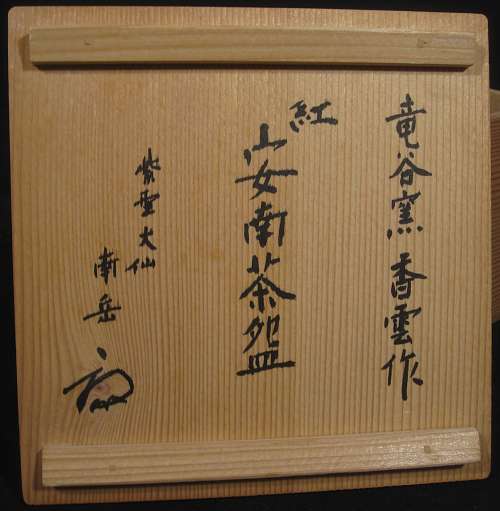 竜谷窯 香雲作
紅
安南茶盌
紫野大仙
南岳